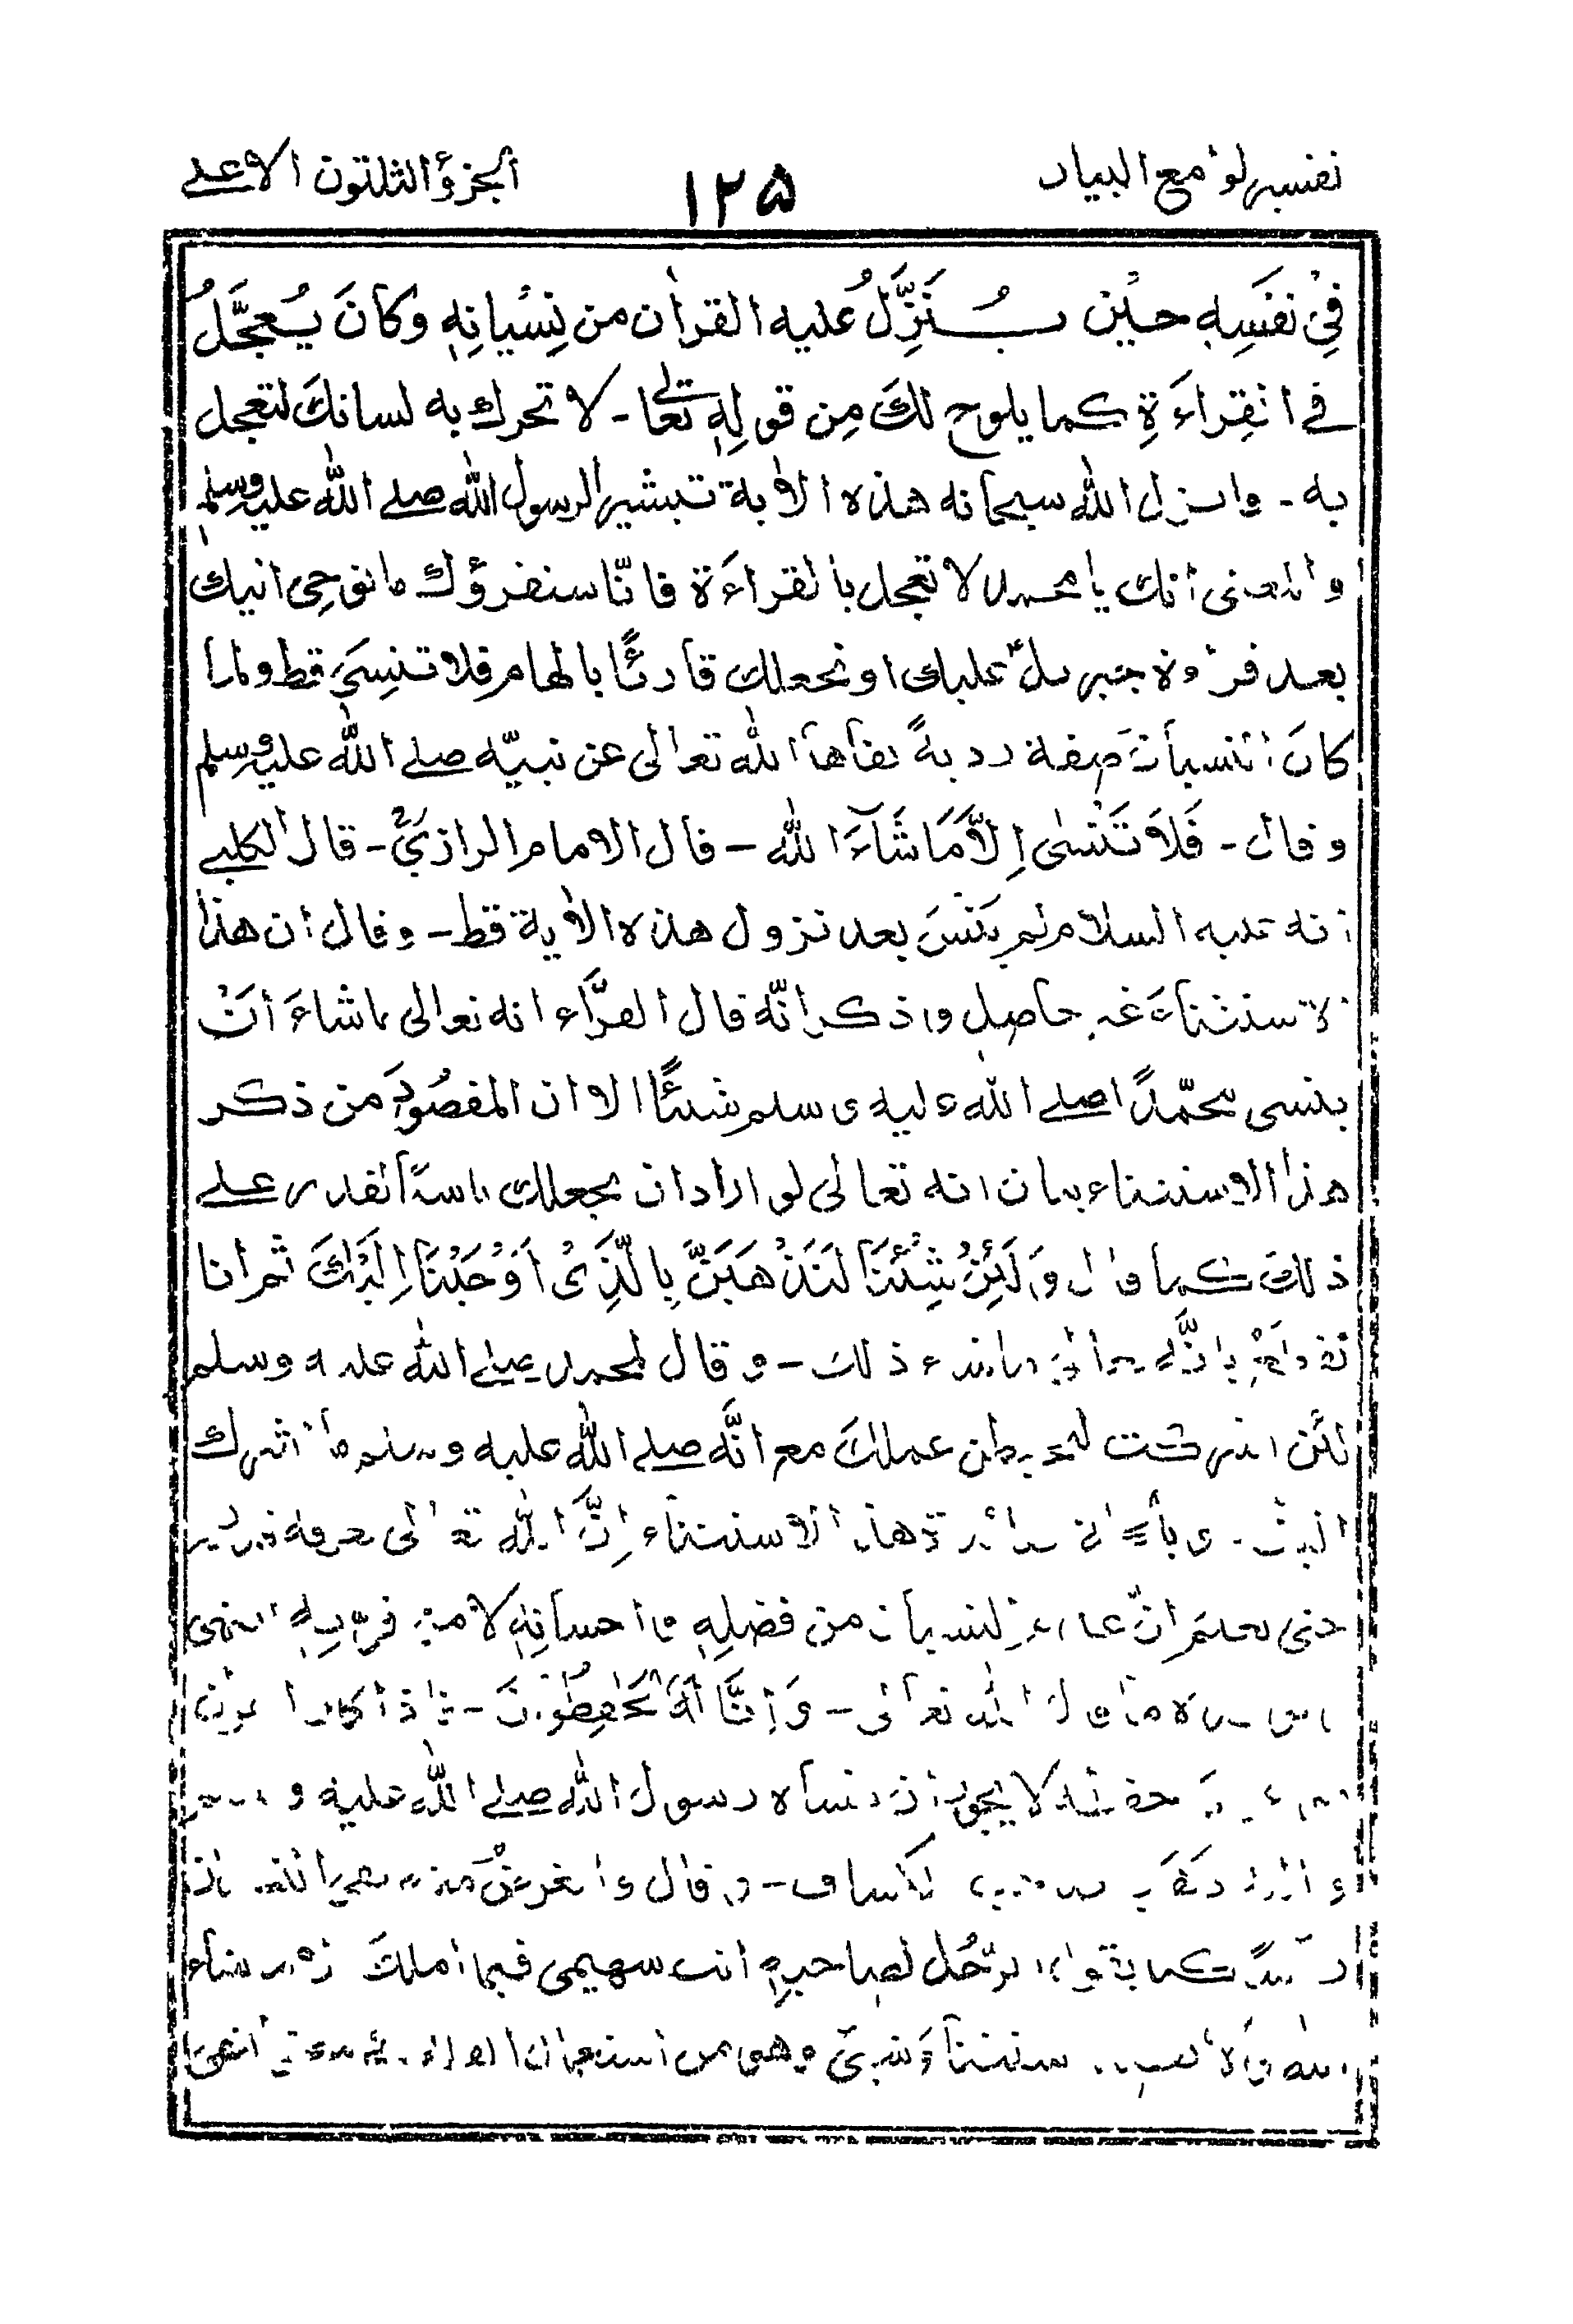 تفسير لوامع البيان
١٢٥
الجزؤ الثلثون الاعلے
فِيْ نَفَسِهٖ حِيْن يُنَزَّلُ عليه القراٰن من نِسْيانِهٖ وكانَ يُعجَّلُ
فے القِراءَةِ كما يلوح لكَ مِن قولِهٖ تعالٰے - لا تحرك به لسانك لتعجل
به - وانزل الله سبحانه هذه الاٰية تبشيرا لرسول الله صلے الله عليه وسلم
والمعنى انك يا محمد لا تعجل بالقراءَة فانّا سنقرؤك ما نوحى اليك
بعد قرؤة جبريل عليك او نجعلك قارئًا بالهام فلا تنسِىَ قط ولما
كانَ النسيان صفة ردية نفاها الله تعالى عن نبيّه صلے الله عليه وسلم
وقال - فَلَا تَنْسٰى اِلَّا مَا شَآءَ الله - قال الامام الرازىؒ - قال الكلبے
انه عليه السلام لم يَنْسَ بعد نزول هذه الاٰية قط - وقال ان هذا
الاستثناءَ غير حاصل وذكر انّه قال الفرَّاء انه تعالى ما شاءَ اَنْ
ينسى محمّدًا صلے الله عليه وسلم شيئًا الا ان المقصُود من ذكر
هذا الاستثناء بيان انه تعالى لو اراد ان يجعلك ناسيًا لقدر علے
ذلك كما قال وَلَئِنْ شِئْنَا لَنَذْهَبَنَّ بِالَّذِىْ اَوْحَيْنَا اِلَيْكَ ثم انا
نقطع بانَّه ما شاء ذلك - وقال لمحمد صلے الله عليه وسلم
لئن اشركت ليحبطن عملك مع انَّه صلے الله عليه وسلم ما اشرك
البتة - وبالجملة فائدة هذا الاستثناء اِنَّ الله تعالى يعرفه قدرته
حتى يعلم انّ عدم النسيان من فضلِهٖ واحسانِهٖ لا من قوّتِهٖ انتهى
قال الله تعالى - وَاِنَّا لَهٗ لَحٰفِظُوْنَ - فاذا كان القراٰن
حفظه لا يجوز ان ينساه رسول الله صلے الله عليه وسلم
صاحب الكشاف - وقال والغرض نفى النسيان
كما يقول الرّجُل لصاحبِهٖ انت سهيمى فيما املك الا ما شاء
الله ولا يقصد استثناءَ شىءٍ وهو من استعمال القلة فى معنى النفى